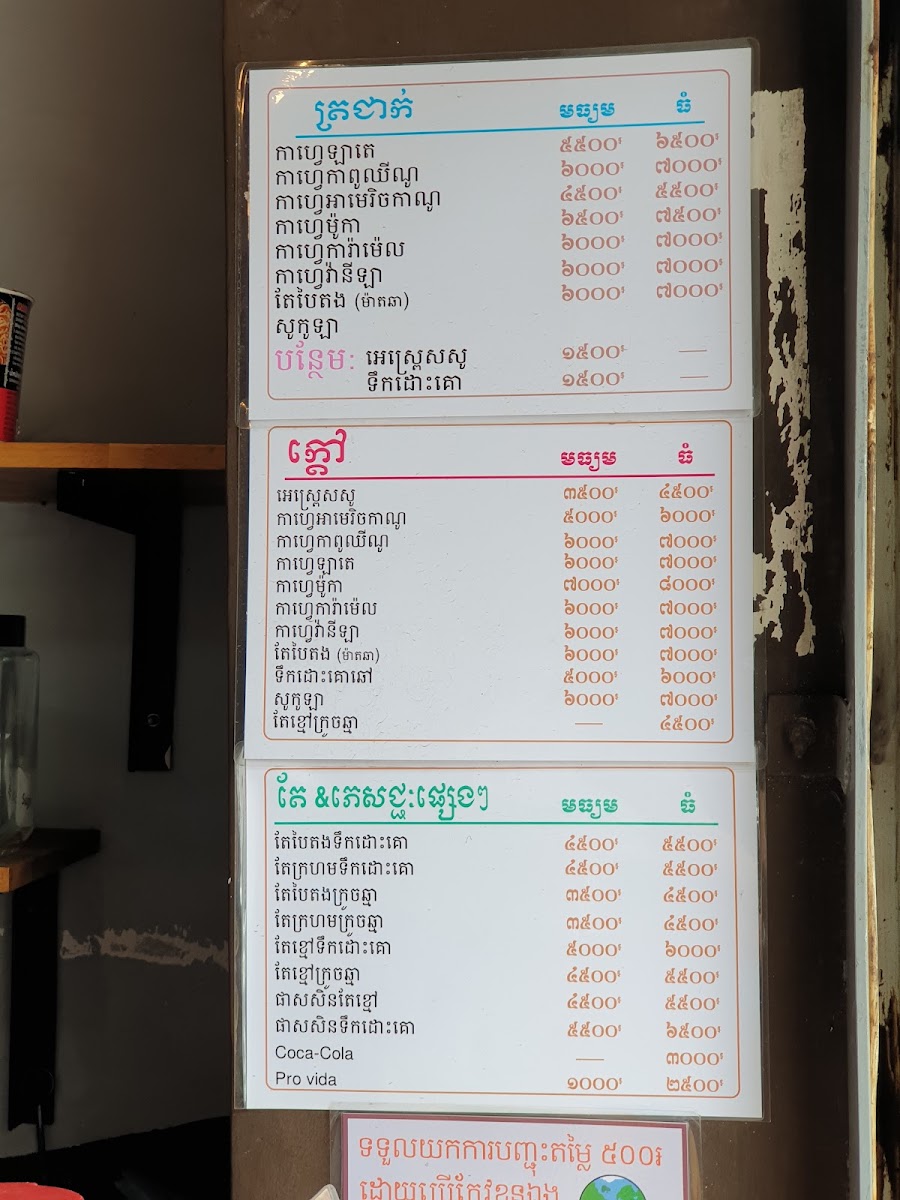 ត្រជាក់ មធ្យម ធំ
កាហ្វេឡាតេ ៥៥០០៛ ៦៥០០៛
កាហ្វេកាពូឈីណូ ៦០០០៛ ៧០០០៛
កាហ្វេអាមេរិចកាណូ ៤៥០០៛ ៥៥០០៛
កាហ្វេម៉ូកា ៦៥០០៛ ៧៥០០៛
កាហ្វេការ៉ាម៉េល ៦០០០៛ ៧០០០៛
កាហ្វេវ៉ានីឡា ៦០០០៛ ៧០០០៛
តែបៃតង (ម៉ាតឆា) ៦០០០៛ ៧០០០៛
សូកូឡា
បន្ថែម: អេស្ព្រេសសូ ១៥០០៛ —
ទឹកដោះគោ ១៥០០៛ —
ក្តៅ មធ្យម ធំ
អេស្ព្រេសសូ ៣៥០០៛ ៤៥០០៛
កាហ្វេអាមេរិចកាណូ ៥០០០៛ ៦០០០៛
កាហ្វេកាពូឈីណូ ៦០០០៛ ៧០០០៛
កាហ្វេឡាតេ ៦០០០៛ ៧០០០៛
កាហ្វេម៉ូកា ៧០០០៛ ៨០០០៛
កាហ្វេការ៉ាម៉េល ៦០០០៛ ៧០០០៛
កាហ្វេវ៉ានីឡា ៦០០០៛ ៧០០០៛
តែបៃតង (ម៉ាតឆា) ៦០០០៛ ៧០០០៛
ទឹកដោះគោឆៅ ៥០០០៛ ៦០០០៛
សូកូឡា ៦០០០៛ ៧០០០៛
តែខ្មៅក្រូចឆ្មា — ៤៥០០៛
តែ &ភេសជ្ជៈផ្សេងៗ មធ្យម ធំ
តែបៃតងទឹកដោះគោ ៤៥០០៛ ៥៥០០៛
តែក្រហមទឹកដោះគោ ៤៥០០៛ ៥៥០០៛
តែបៃតងក្រូចឆ្មា ៣៥០០៛ ៤៥០០៛
តែក្រហមក្រូចឆ្មា ៣៥០០៛ ៤៥០០៛
តែខ្មៅទឹកដោះគោ ៥០០០៛ ៦០០០៛
តែខ្មៅក្រូចឆ្មា ៤៥០០៛ ៥៥០០៛
ផាសសិនតែខ្មៅ ៤៥០០៛ ៥៥០០៛
ផាសសិនទឹកដោះគោ ៥៥០០៛ ៦៥០០៛
Coca-Cola — ៣០០០៛
Pro vida ១០០០៛ ២៥០០៛
ទទួលយកការបញ្ចុះតម្លៃ ៥០០៛
ដោយប្រើកែវខ្លួនឯង